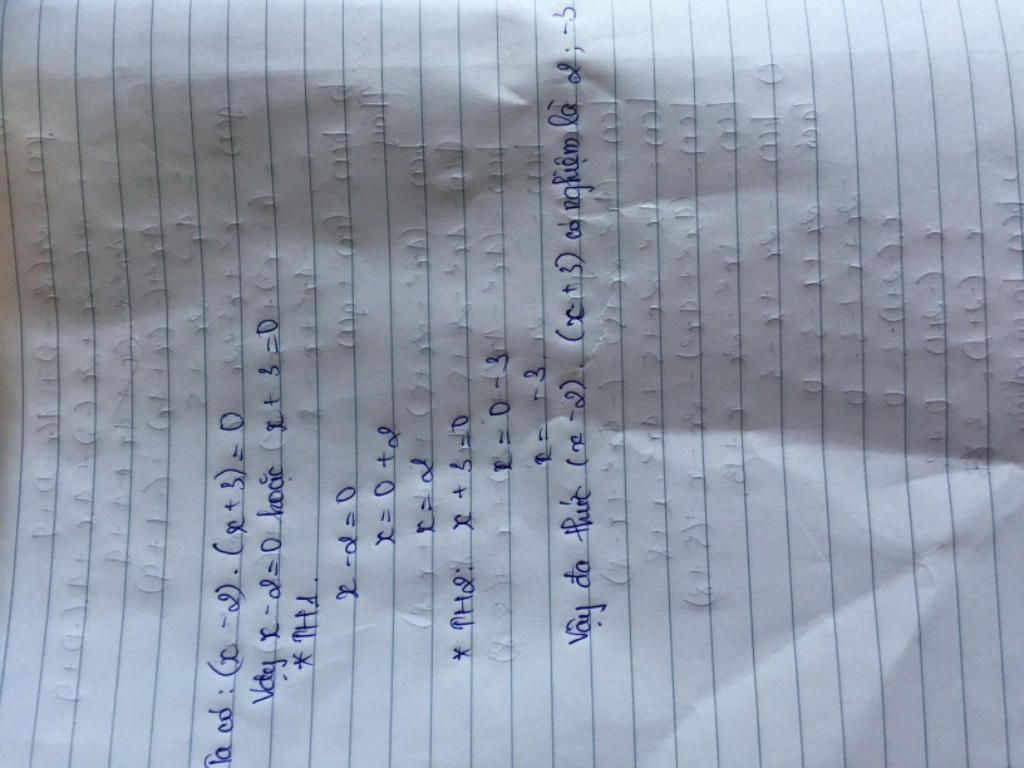 Ta có : (x - 2) . (x + 3) = 0
Vậy x - 2 = 0 hoặc x + 3 = 0
* TH1.
x - 2 = 0
x = 0 + 2
x = 2
* TH2: x + 3 = 0
x = 0 - 3
x = - 3
Vậy đa thức (x - 2) . (x + 3) có nghiệm là 2 ; -3